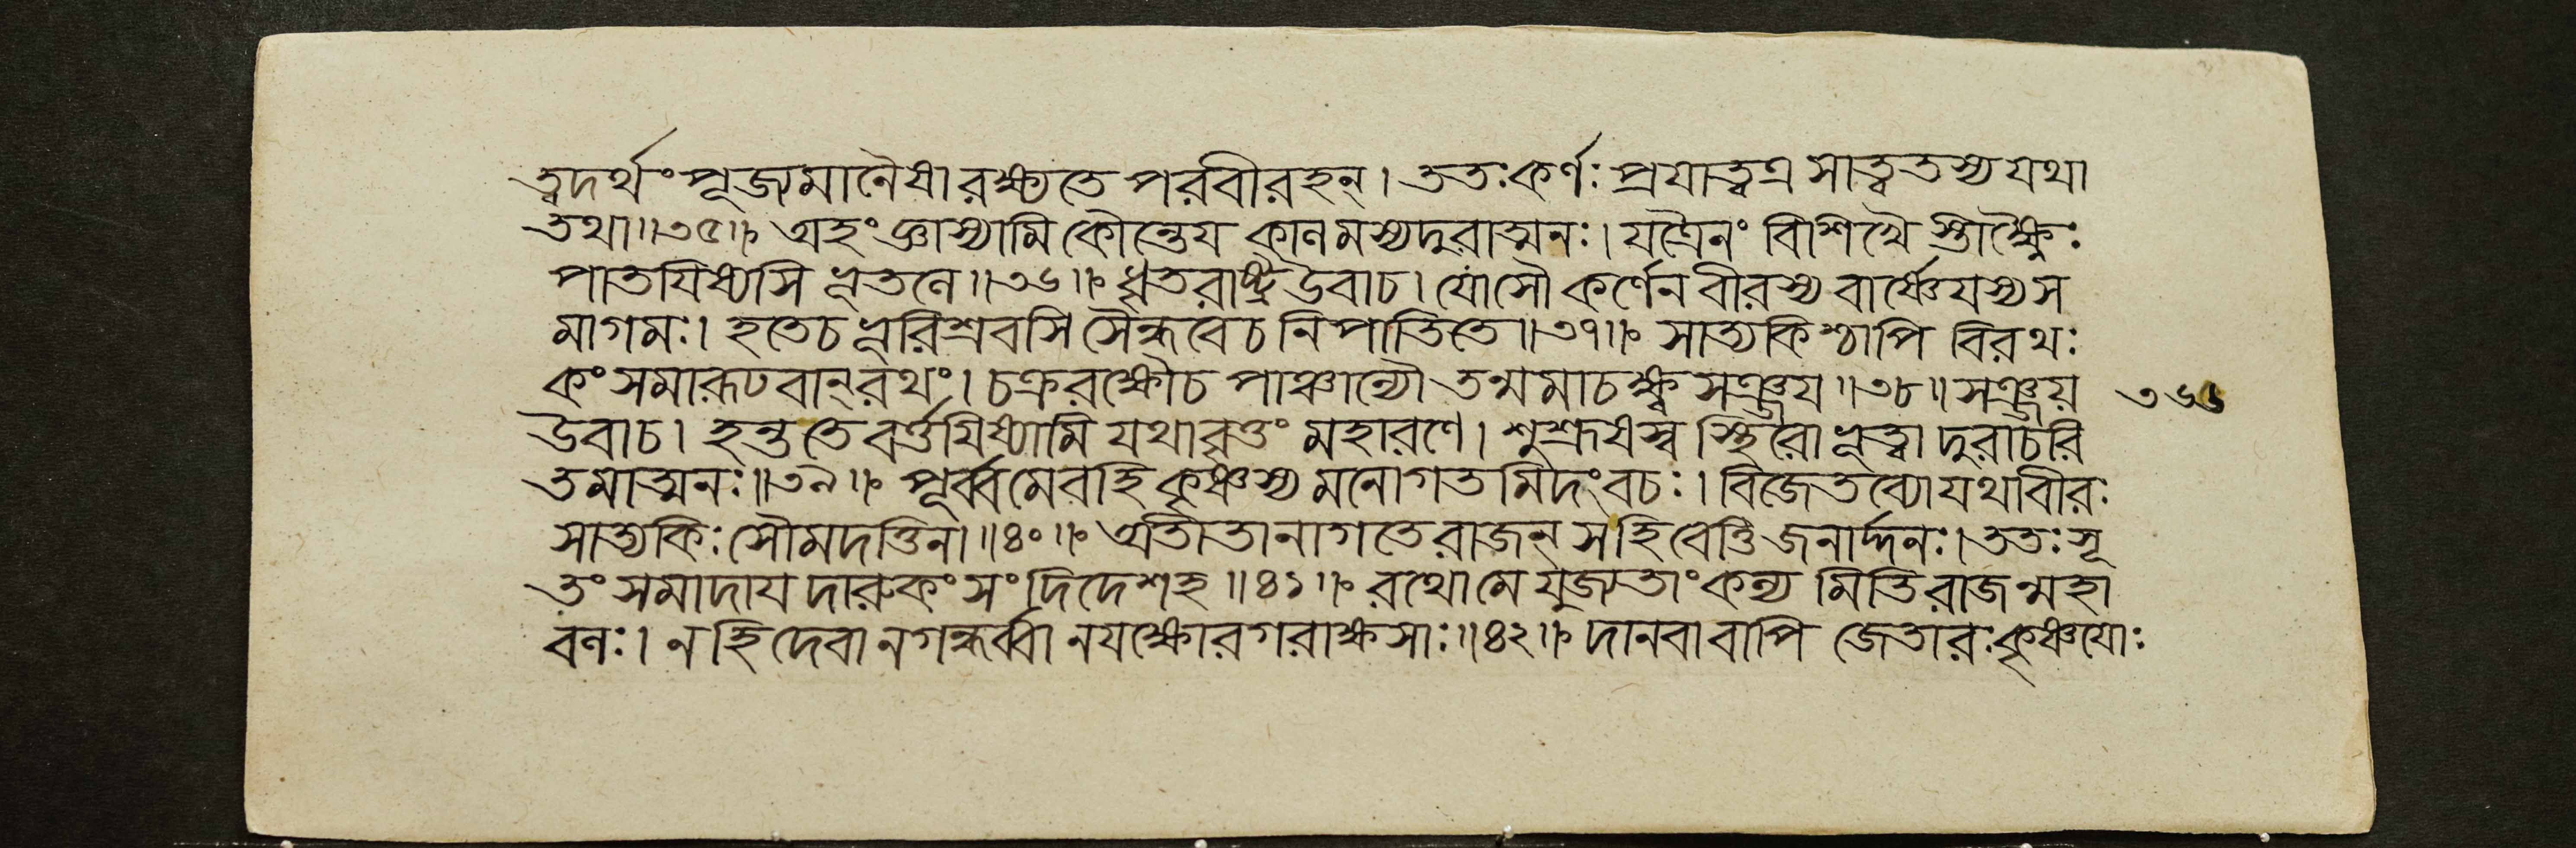 ত্বদর্থং পূজ্যমানৈষা রক্ষ্যতে পরবীরহন্। ততঃ কর্ণঃ প্রযাত্বত্র সাত্বতস্য যথা
তথা॥৩৫॥ অহং জ্ঞাস্যামি কৌন্তেয কালমস্য দুরাত্মনঃ। যত্রৈনং বিশিখৈ স্তীক্ষ্ণৈঃ
পাতযিষ্যসি ভূতলে॥৩৬॥ ধৃতরাষ্ট্র উবাচ। যোসৌ কর্ণেন বীরস্য বার্ষ্ণেযস্য স
মাগমঃ। হতে চ ভূরিশ্রবসি সৈন্ধবে চ নিপাতিতে॥৩৭॥ সাত্যকিশ্চাপি বিরথঃ
কং সমারূঢবান্ রথং। চক্ররক্ষৌ চ পাঞ্চাল্যৌ তন্মমাচক্ষ্ব সঞ্জয॥৩৮॥ সঞ্জয়
উবাচ। হন্ত তে বর্ণ্ণযিষ্যামি যথাবৃত্তং মহারণে। শুশ্রূষস্ব স্থিরো ভূত্বা দুরাচরি
তমাত্মনঃ॥৩৯॥ পূর্ব্বমেব হি কৃষ্ণস্য মনোগতমিদং বচঃ। বিজেতব্যো যথা বীরঃ
সাত্যকিঃ সৌমদত্তিনা॥৪০॥ অতীতানাগতে রাজন্ স হি বেত্তি জনার্দ্দনঃ। ততঃ সূ
তং সমাদায দারুকং সংদিদেশ হ॥৪১॥ রথো মে যুজ্যতাং কল্য মিতি রাজন্মহা
বলঃ। ন হি দেবা ন গন্ধর্ব্বা ন যক্ষোরগরাক্ষসাঃ॥৪২॥ দানবা বাপি জেতারঃ কৃষ্ণযোঃ
৩৬৬